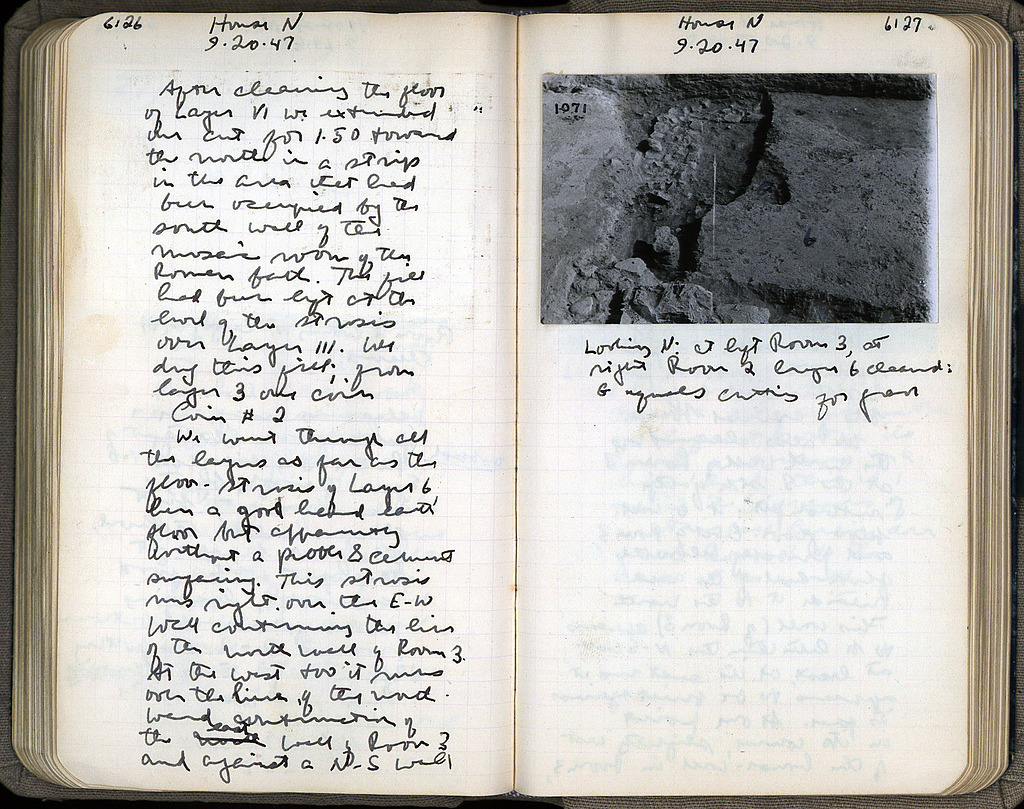 6126
House N
9.20.47
After cleaning the floor
of Layer VI we extended "
our cut for 1.50 toward
the north in a strip
in the area that had
been occupied by the
south wall of the
mosaic room of the
Roman bath. The fill
had been left at the
level of the strosis
over Layer III. We
dug this fill, from
layer 3 one coin
Coin # 2
We went through all
the layers as far as the
floor-strosis of Layer 6,
here a good hard earth
floor but apparently
without a proper cement
surfacing. This strosis
runs right over the E-W
wall continuing the line
of the north wall of Room 3.
At the west too it runs
over the line of the north-
ward continuation of
the east wall of Room 3
and against a N-S wall
House N
9.20.47
6127
1071
6
Looking N: at left Room 3, at
right Room 2 layer 6 cleaned:
6 equals cutting for